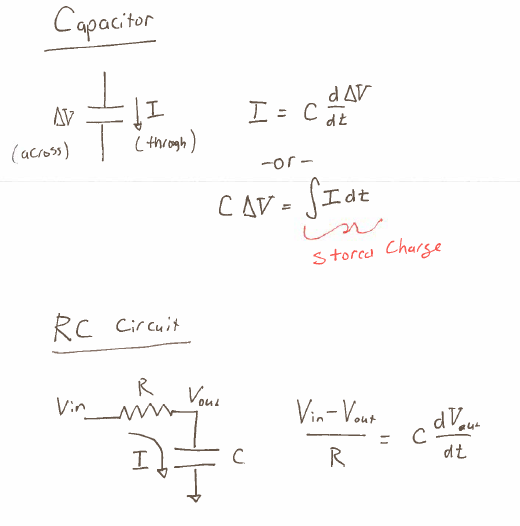 Capacitor
ΔV
I
(across)
(throgh)
I = C dΔV/dt
-or-
C ΔV = ∫I dt
Stored Charge
RC Circuit
Vin
R
Vout
I
C
(Vin-Vout)/R = C dVout/dt